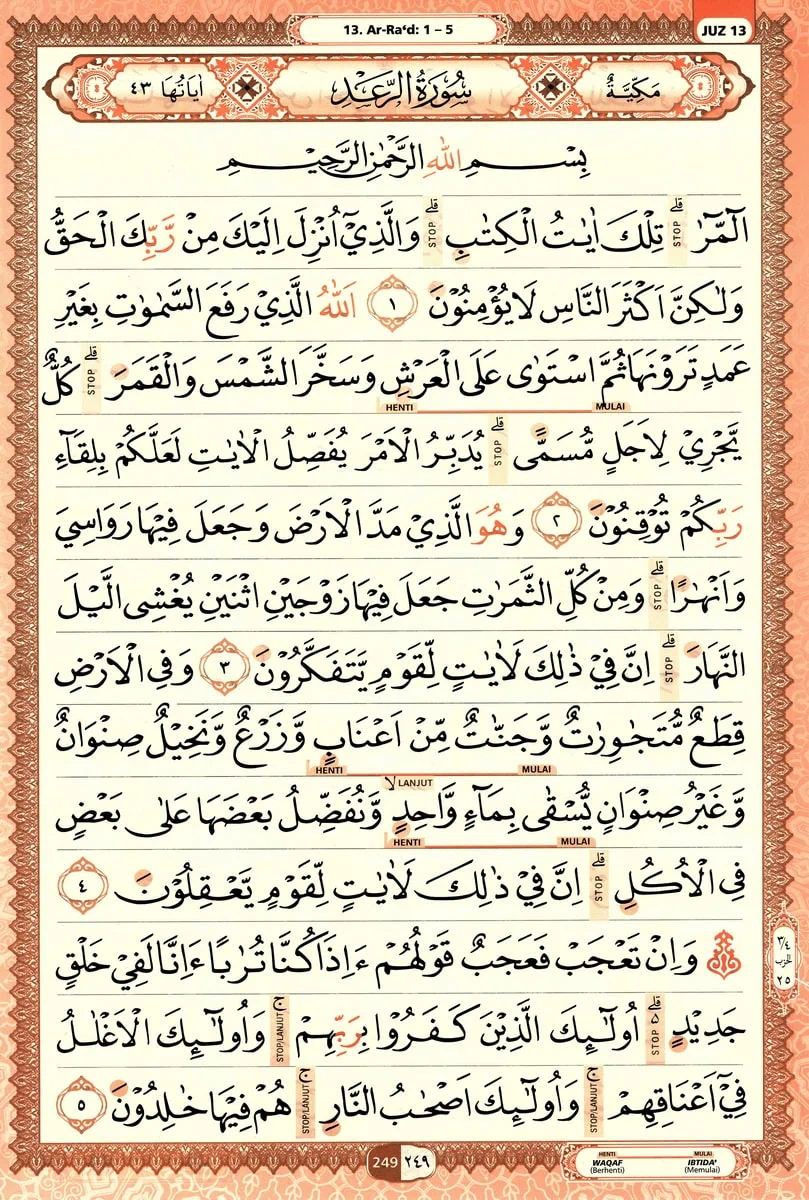 13. Ar-Ra‘d: 1 – 5
JUZ 13
مَكِّيَّةٌ
سُوْرَةُ الرَّعْدِ
اٰيَاتُهَا ٤٣
بِسْمِ اللّٰهِ الرَّحْمٰنِ الرَّحِيْمِ
الۤمّۤرٰ ۗ STOP تِلْكَ اٰيٰتُ الْكِتٰبِ ۗ STOP وَالَّذِيْٓ اُنْزِلَ اِلَيْكَ مِنْ رَّبِّكَ الْحَقُّ
وَلٰكِنَّ اَكْثَرَ النَّاسِ لَا يُؤْمِنُوْنَ ١ اَللّٰهُ الَّذِيْ رَفَعَ السَّمٰوٰتِ بِغَيْرِ
عَمَدٍ تَرَوْنَهَا ثُمَّ اسْتَوٰى عَلَى الْعَرْشِ وَسَخَّرَ الشَّمْسَ وَالْقَمَرَ ۗ STOP كُلٌّ
HENTI MULAI
يَّجْرِيْ لِاَجَلٍ مُّسَمًّى ۗ STOP يُدَبِّرُ الْاَمْرَ يُفَصِّلُ الْاٰيٰتِ لَعَلَّكُمْ بِلِقَاۤءِ
رَبِّكُمْ تُوْقِنُوْنَ ٢ وَهُوَ الَّذِيْ مَدَّ الْاَرْضَ وَجَعَلَ فِيْهَا رَوَاسِيَ
وَاَنْهٰرًا ۗ STOP وَمِنْ كُلِّ الثَّمَرٰتِ جَعَلَ فِيْهَا زَوْجَيْنِ اثْنَيْنِ يُغْشِى الَّيْلَ
النَّهَارَ ۗ STOP اِنَّ فِيْ ذٰلِكَ لَاٰيٰتٍ لِّقَوْمٍ يَّتَفَكَّرُوْنَ ٣ وَفِى الْاَرْضِ
قِطَعٌ مُّتَجٰوِرٰتٌ وَّجَنّٰتٌ مِّنْ اَعْنَابٍ وَّزَرْعٌ وَّنَخِيْلٌ صِنْوَانٌ
HENTI MULAI
لا LANJUT
وَّغَيْرُ صِنْوَانٍ يُّسْقٰى بِمَاۤءٍ وَّاحِدٍ وَّنُفَضِّلُ بَعْضَهَا عَلٰى بَعْضٍ
HENTI MULAI
فِى الْاُكُلِ ۗ STOP اِنَّ فِيْ ذٰلِكَ لَاٰيٰتٍ لِّقَوْمٍ يَّعْقِلُوْنَ ٤
وَاِنْ تَعْجَبْ فَعَجَبٌ قَوْلُهُمْ ءَاِذَا كُنَّا تُرٰبًا ءَاِنَّا لَفِيْ خَلْقٍ
جَدِيْدٍ ۗ ە STOP اُولٰۤىِٕكَ الَّذِيْنَ كَفَرُوْا بِرَبِّهِمْ ۚ STOP/LANJUT وَاُولٰۤىِٕكَ الْاَغْلٰلُ
فِيْٓ اَعْنَاقِهِمْ ۚ STOP/LANJUT وَاُولٰۤىِٕكَ اَصْحٰبُ النَّارِ ۚ STOP/LANJUT هُمْ فِيْهَا خٰلِدُوْنَ ٥
٣/٤
الحزب
٢٥
249 ٢٤٩
HENTI MULAI
WAQAF IBTIDA'
(Berhenti) (Memulai)